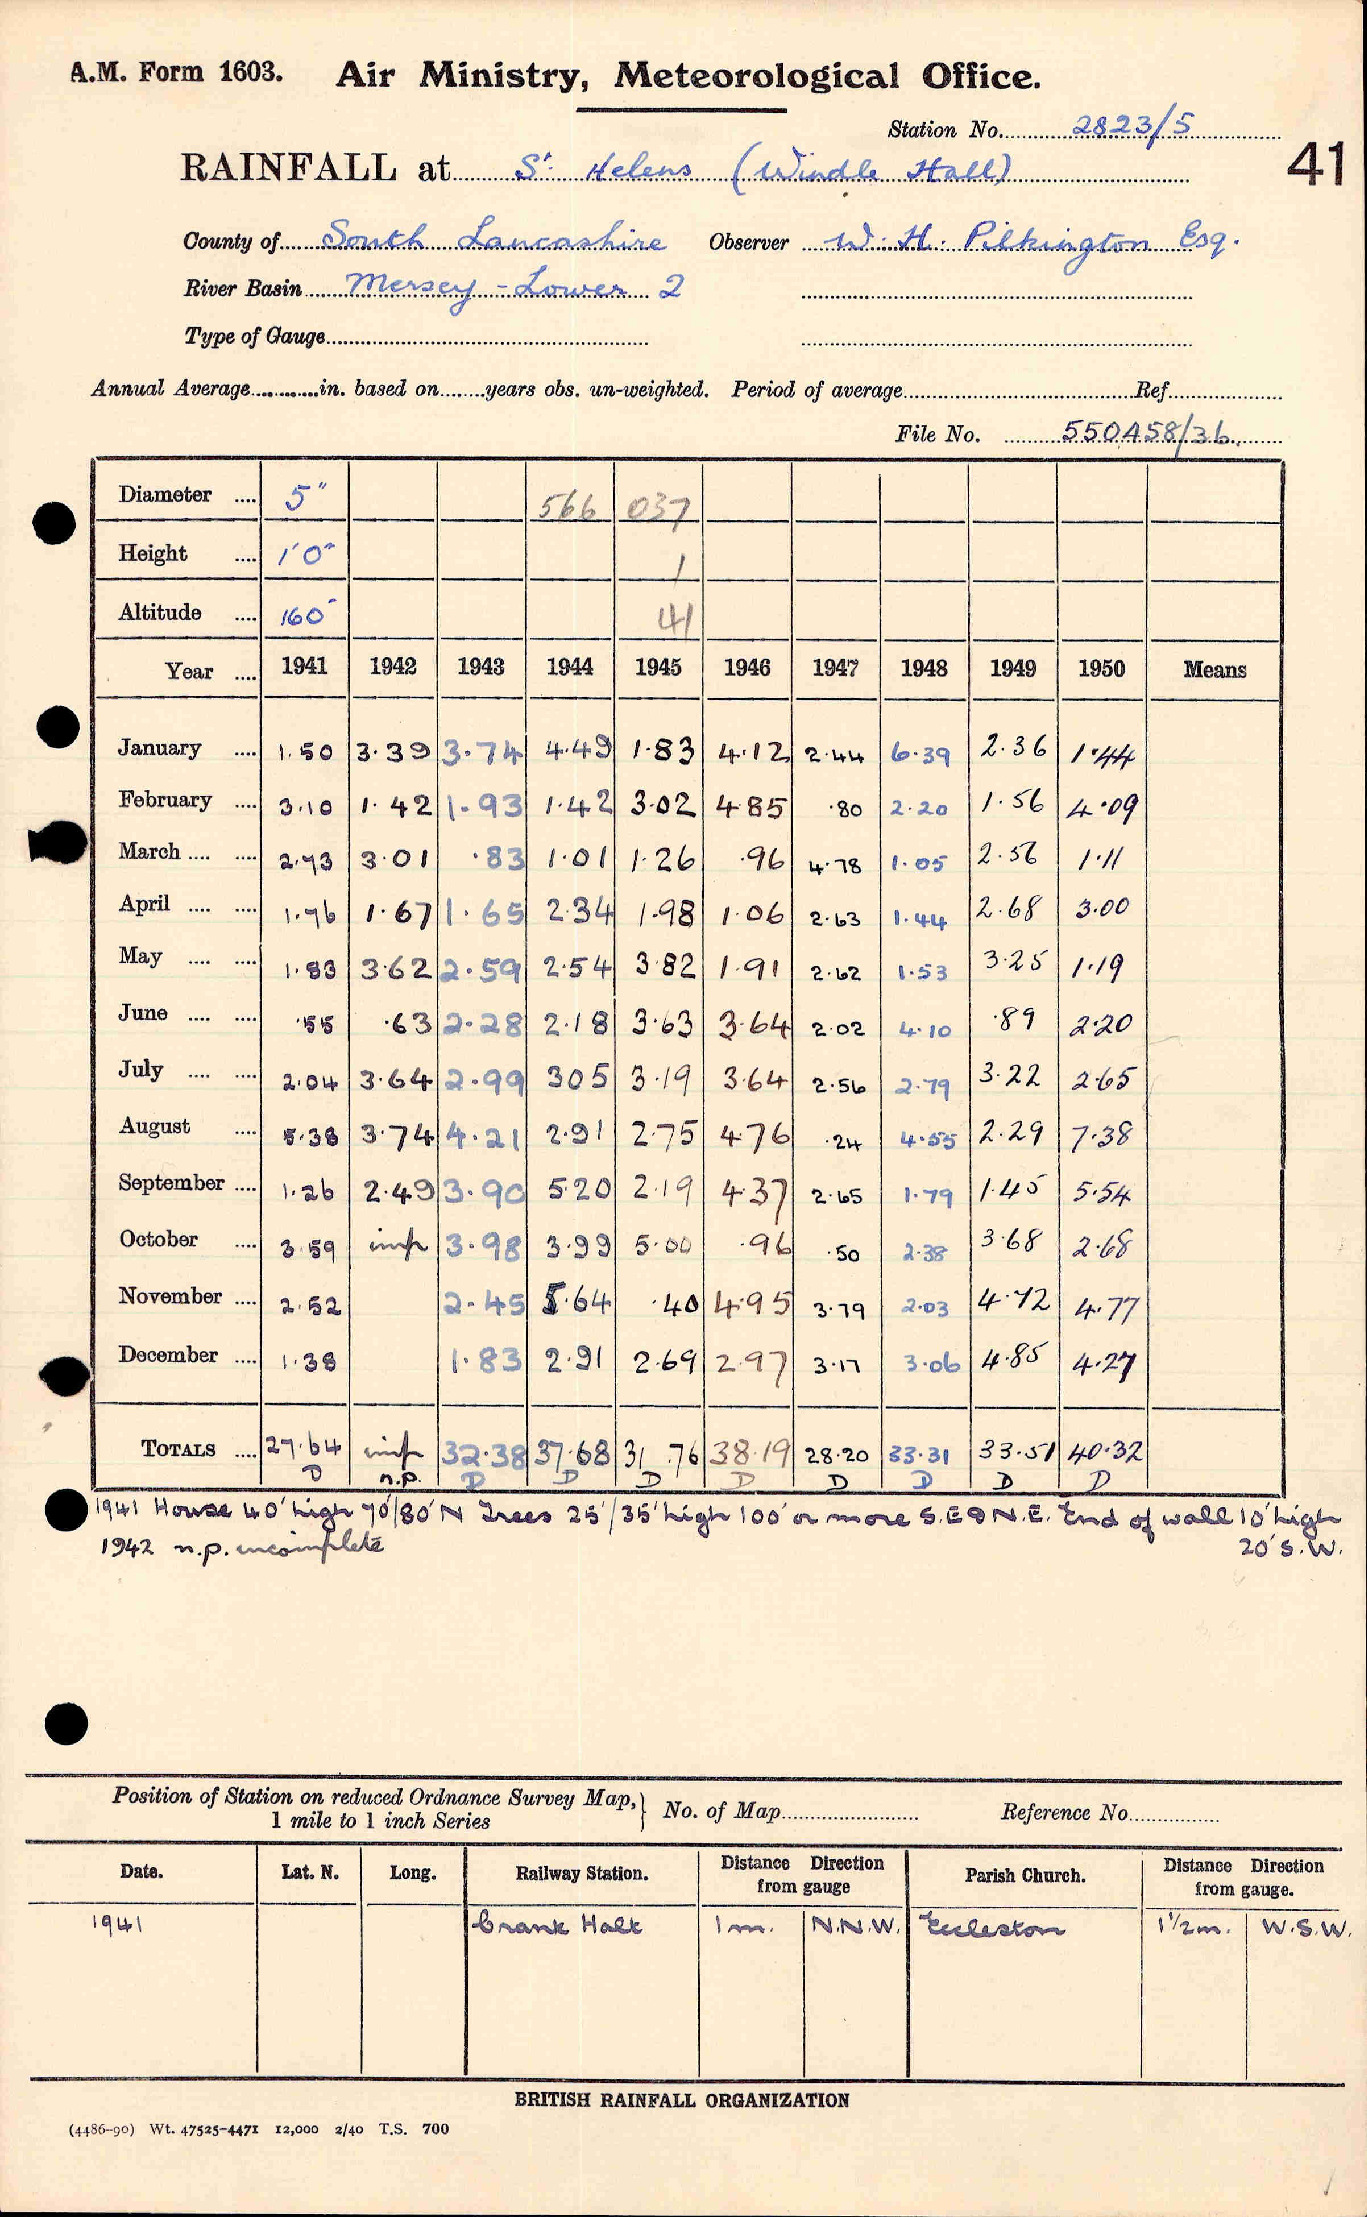 A.M. Form 1603. Air Ministry, Meteorological Office.
Station No. 2823/5
41
RAINFALL at St. Helens (Windle Hall)
County of South Lancashire Observer W. H. Pilkington Esq.
River Basin Mersey - Lower 2
Type of Gauge
Annual Average in. based on years obs. un-weighted. Period of average Ref.
File No. 550458/36
Diameter .... 5" 566 037
Height .... 1'0" 1
Altitude .... 160' 41
Year .... 1941 1942 1943 1944 1945 1946 1947 1948 1949 1950 Means
January .... 1.50 3.39 3.74 4.49 1.83 4.12 2.44 6.39 2.36 1.44
February .... 3.10 1.42 1.93 1.42 3.02 4.85 .80 2.20 1.56 4.09
March .... .... 2.73 3.01 .83 1.01 1.26 .96 4.78 1.05 2.56 1.11
April .... .... 1.76 1.67 1.65 2.34 1.98 1.06 2.63 1.44 2.68 3.00
May .... .... 1.83 3.62 2.59 2.54 3.82 1.91 2.62 1.53 3.25 1.19
June .... .... .55 .63 2.28 2.18 3.63 3.64 2.02 4.10 .89 2.20
July .... .... 2.04 3.64 2.99 3.05 3.19 3.64 2.56 2.79 3.22 2.65
August .... 5.38 3.74 4.21 2.91 2.75 4.76 .24 4.55 2.29 7.38
September .... 1.26 2.49 3.90 5.20 2.19 4.37 2.65 1.79 1.45 5.54
October .... 3.59 imp 3.98 3.99 5.00 .96 .50 2.38 3.68 2.68
November .... 2.52 2.45 5.64 .40 4.95 3.79 2.03 4.72 4.77
December .... 1.38 1.83 2.91 2.69 2.97 3.17 3.06 4.85 4.27
TOTALS .... 27.64 imp 32.38 37.68 31.76 38.19 28.20 33.31 33.51 40.32
D n.p. D D D D D D D D
1941 House 40' high 70'/80' N Trees 25'/35' high 100' or more S.E & N.E. End of wall 10' high
1942 n.p. incomplete 20' S.W.
Position of Station on reduced Ordnance Survey Map, } No. of Map Reference No.
1 mile to 1 inch Series
Date. Lat. N. Long. Railway Station. Distance Direction from gauge Parish Church. Distance Direction from gauge.
1941 Crank Halt 1m. N.N.W. Eccleston 1½m. W.S.W.
BRITISH RAINFALL ORGANIZATION
(4486-90) Wt. 47525-4471 12,000 2/40 T.S. 700